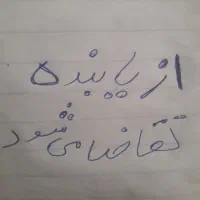 از یابنده
تقاضا می شود